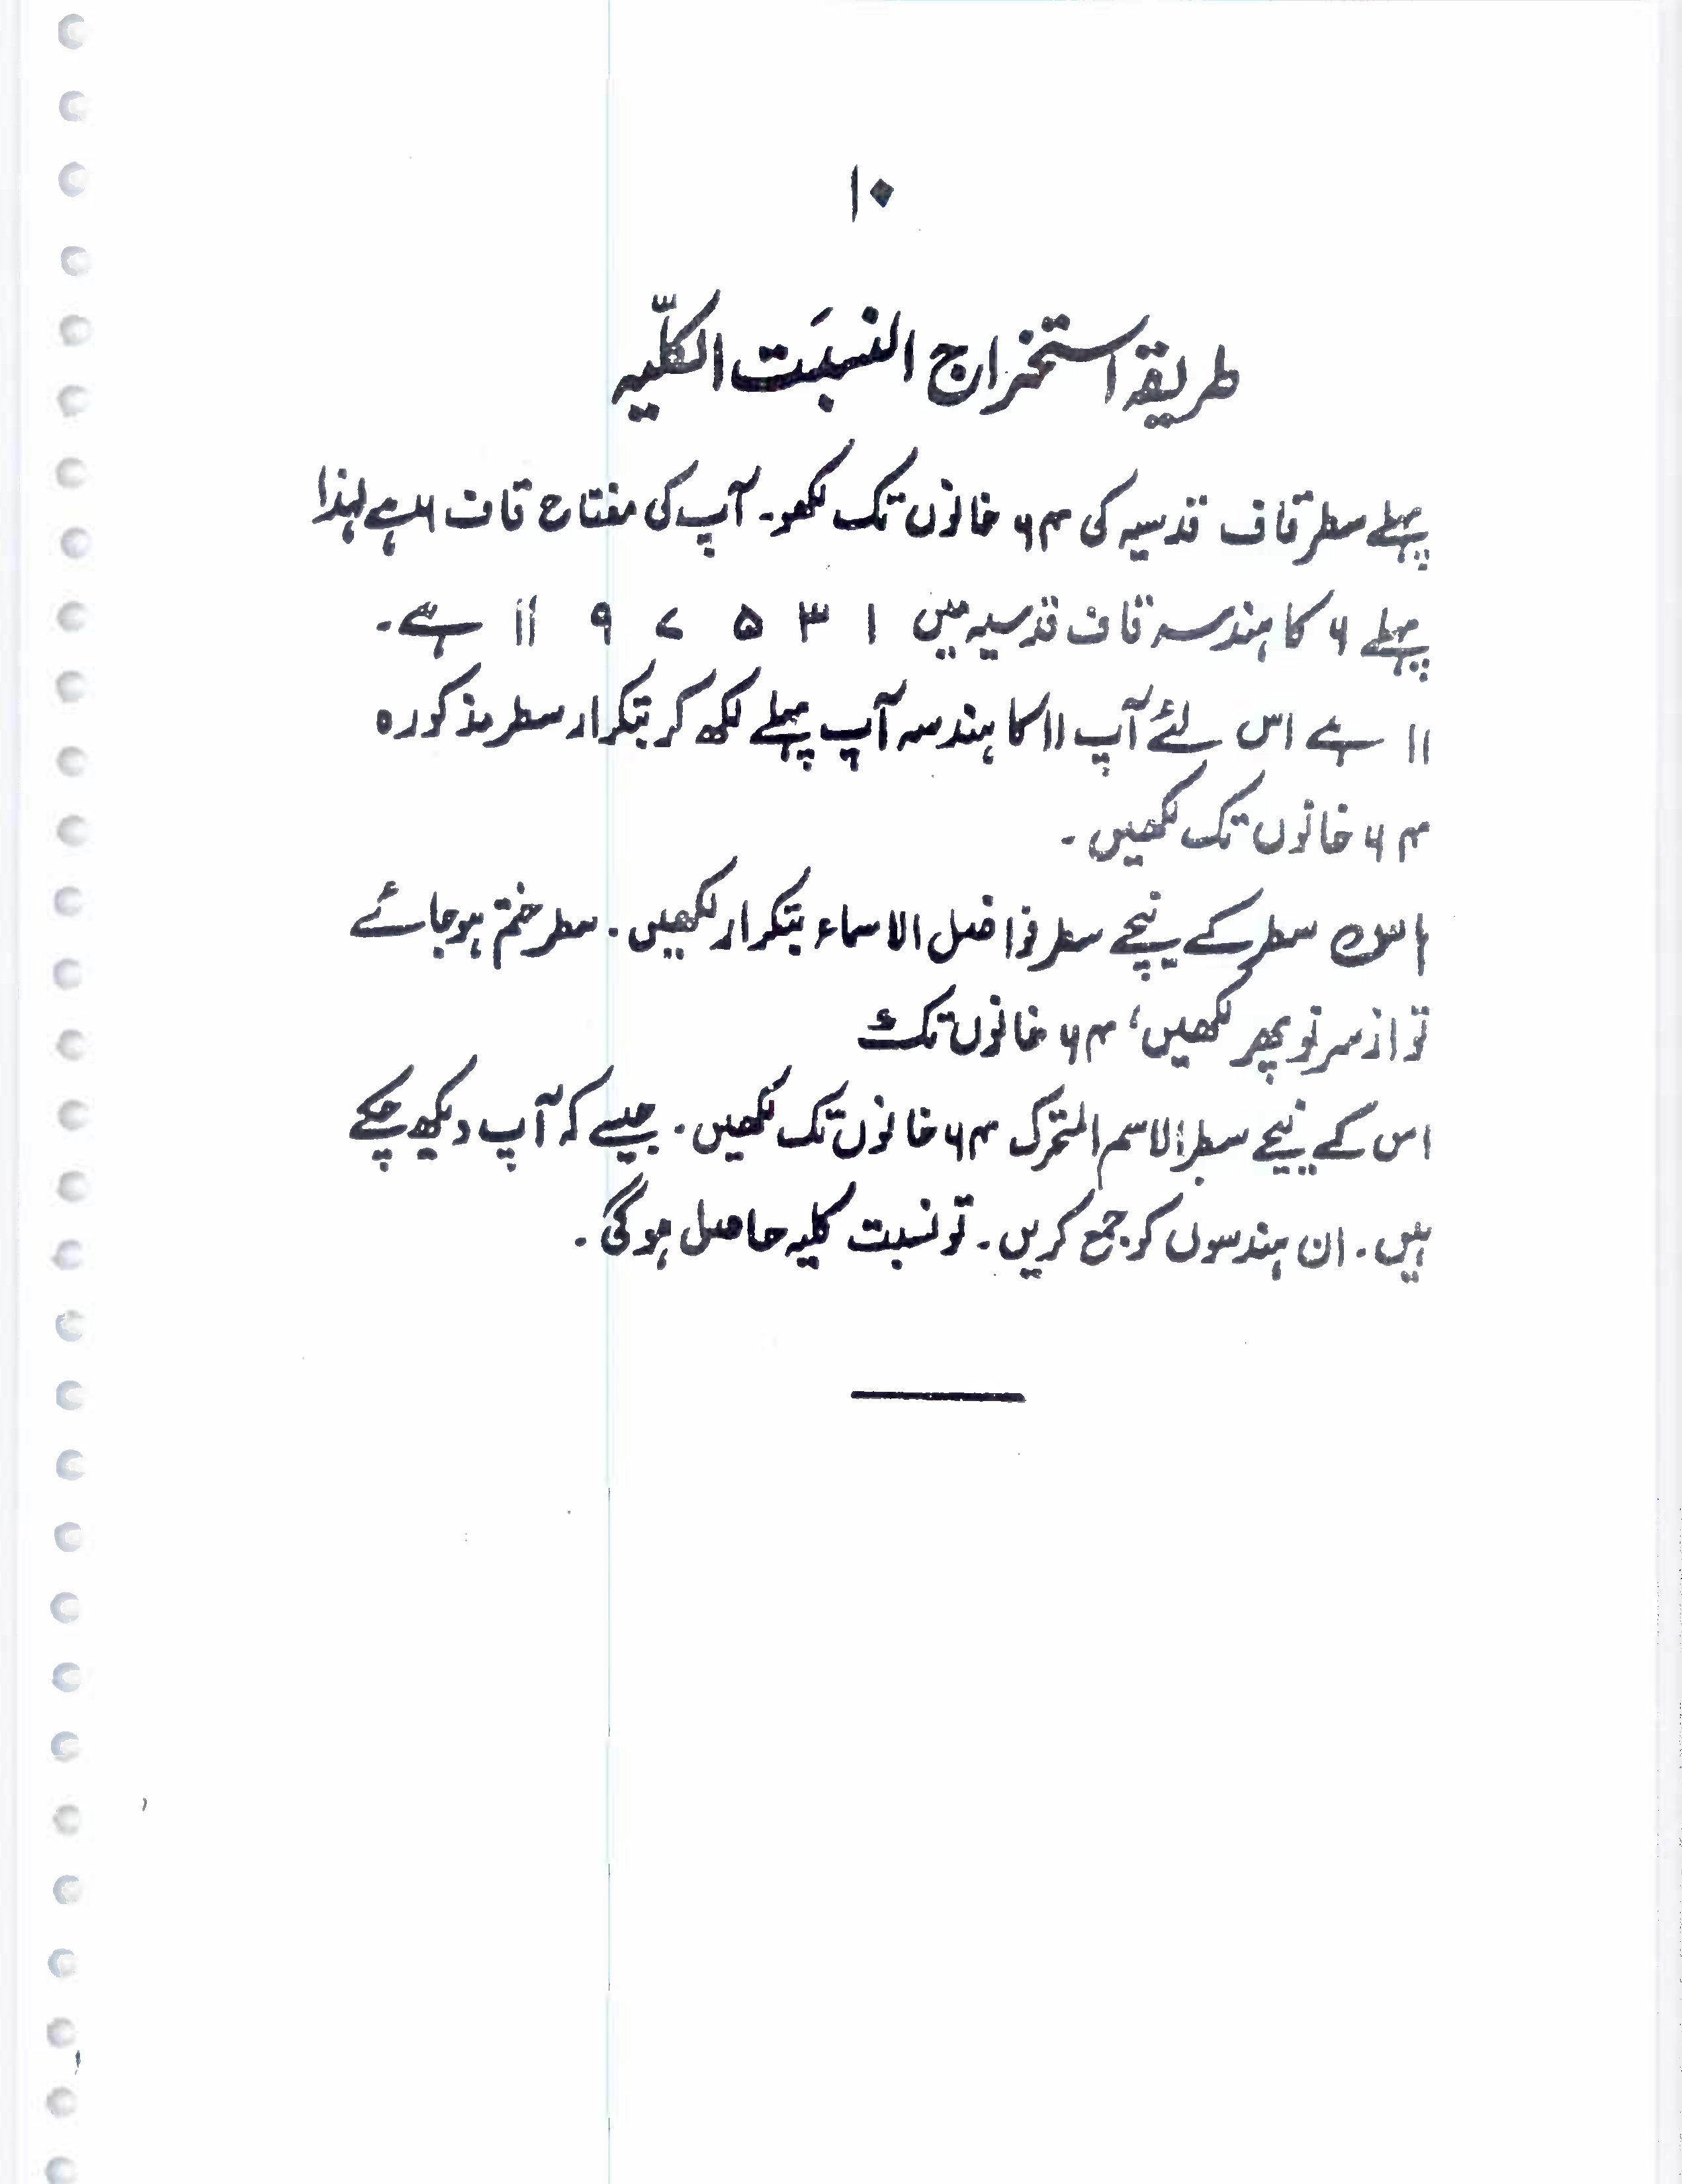 ۱۰
طریقہ استخراج النسبَت الکلّیہ
پہلے سطر قاف قدسیہ کی ۶۴ خانوں تک لکھو۔ آپ کی مفتاح قاف ہے لہٰذا
پہلے ۶ کا ہندسہ قاف قدسیہ میں ۱ ۳ ۵ ۷ ۹ ۱۱ ہے۔
۱۱ ہے اس لئے آپ ۱۱ کا ہندسہ آپ پہلے لکھ کر بتکرار سطر مذکورہ
۶۴ خانوں تک لکھیں۔
اس سطر کے نیچے سطر فواضل الاسماء بتکرار لکھیں۔ سطر ختم ہو جائے
تو از سر نو پھر لکھیں، ۶۴ خانوں تک
اس کے نیچے سطر الاسم المتحرک ۶۴ خانوں تک لکھیں۔ جیسے کہ آپ دیکھ چکے
ہیں۔ ان ہندسوں کو جمع کریں۔ تو نسبت کلیہ حاصل ہوگی۔